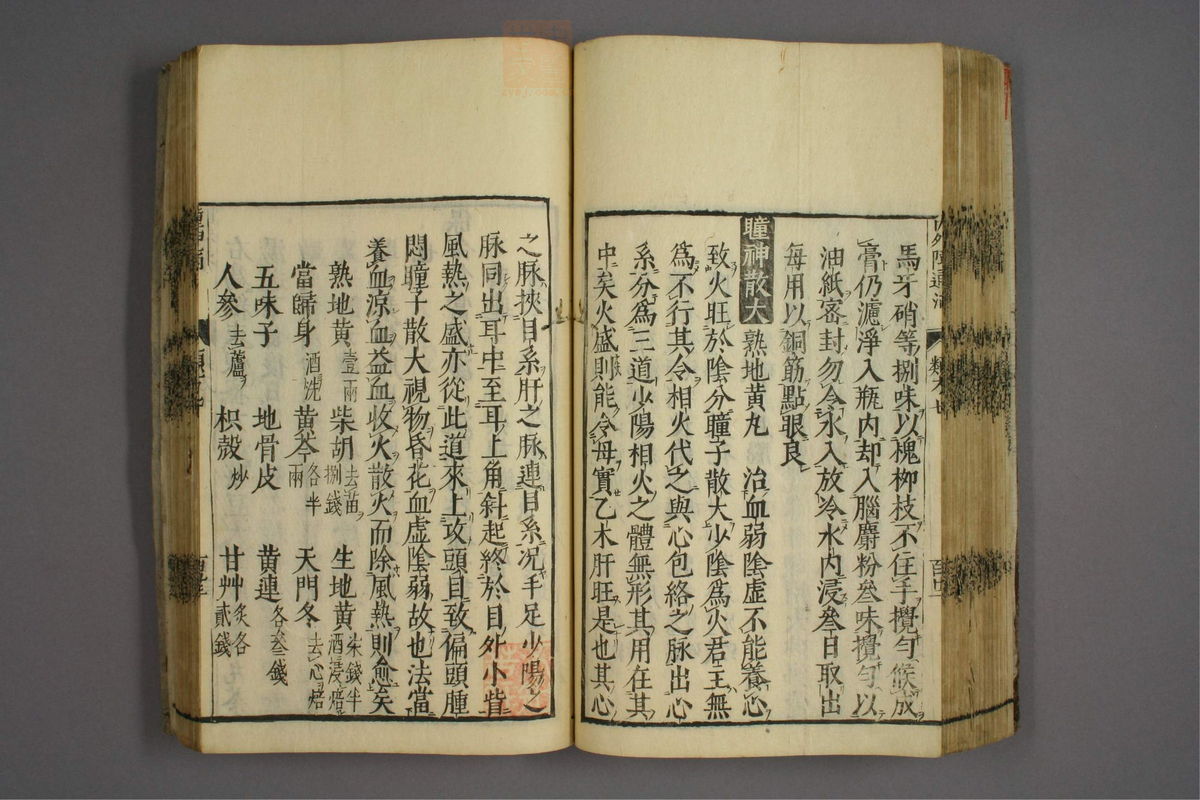 馬牙硝等捌味以槐柳枝不住手攪勻候成
膏仍濾淨入瓶内却入腦麝粉叄味攪勻以
油紙密封勿令水入放冷水内浸叄日取出
每用以銅筋點眼良
瞳神散大 熟地黄丸 治血弱陰虛不能養心
致火旺於陰分瞳子散大少陰爲火君主無
爲不行其令相火代之與心包絡之脉出心
系分爲三道少陽相火之體無形其用在其
中矣火盛則能令母實乙木肝旺是也其心
之脉挾目系肝之脉連目系况手足少陽之
脉同出耳中至耳上角斜起終於目外小眥
風熱之盛亦從此道來上攻頭目致偏頭腫
悶瞳子散大視物昏花血虛陰弱故也法當
養血凉血益血收火散火而除風熱則愈矣
熟地黄壹兩 柴胡去苗捌錢 生地黄柒錢半酒浸焙
當歸身酒洗 黄芩各半兩 天門冬去心焙
五味子 地骨皮 黄連各叄錢
人參去蘆 枳殼炒 甘艸炙各貳錢